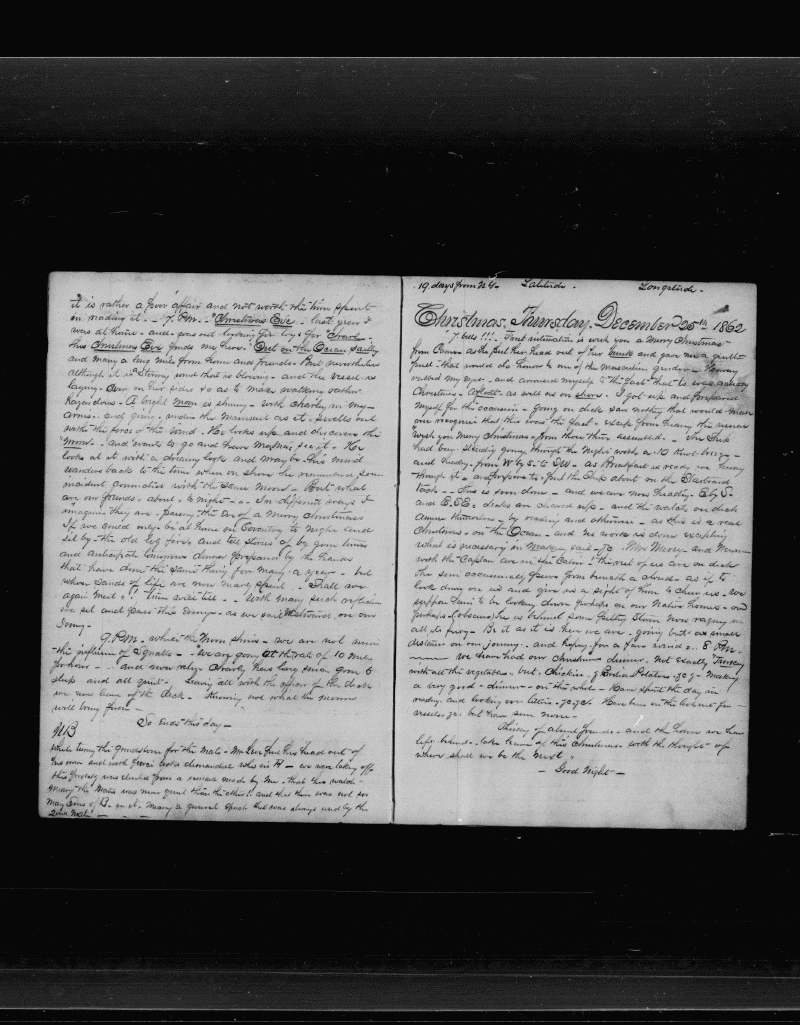 it is rather a poor affair and not worth the time spent
in reading it. - 7. P.M. - "Christmas Eve. last year I
was at home - and
this Christmas Eve finds me here. Out on the Ocean sailing
and many a long mile from home and friends - But nevertheless
although it is Strong wind that is blowing - and the vessel is
laying over on her sides so as to make walking rather
hazardous - A bright moon is shining - with Charley in my -
arms. and going under the mainsail as it swells out
with the force of the wind. He looks up and discovers the
"moon". and wants to go and have Mamma see it - He
looks at it with a dreamy look and may be this mind
wanders back to the time when on shore he remembers some
incident connected with the same moon. - But what
are our friends - about - to night - - In different ways I
imagine they are - passing the Eve of a Merry Christmas
If we could only be at home on Coventry to Night and
sit by - the old log fires and tell stories of by gone times
and anticipate tomorrows dinner prepared by the hands
that have done the same thing for many a year - but
whose sands of life are now nearly spent - Shall we
again meet ? ! time will tell. - - With many such reflections
we sit and pass this Evening - as we sail onward on our
Journey -
9. P.M. - while the Moon shines - we are not
the influence of Squalls - - We are going at the rate of 10 miles
per hour - and now retire Charley has long since gone to
sleep and all quiet. Leaving all with the officer of the deck
we now leave of the Deck. Knowing not what the morrow
will bring forth -
So Ends this day -
NB
While turning the Grindstone for the Mate - Mr put his head out of
his room and with looks demanded who is it - we now taking off
this was elicited from a remark made by me - that this watch -
meaning the Mates was more quiet than the other !. and that there was not so
many Sons of B. in it - Meaning a general Epithet that was always used by the
2nd Mate - - -
19 days from N.Y. - Latitude . Longitude .
Christmas, Thursday, December 25th 1862
7 bells !!! . First intimation is wish you a Merry Christmas
from Emma as she put her head out of her bunk and gave me a gentle
punch that would do honor to one of the masculine gender -
rubbed my eyes - and convinced myself of the fact that it was actually
Christmas - Afloat - as well as on shore. I got up and prepared
myself for the occasion - going on deck saw nothing that would make
one recognise that this was the fact - Safe from hearing the usual
"wish you Merry Christmas" from those there assembled. - The Ship
had been steadily going through the Night with a 10 knot breeze -
and heading from W by S. to S.W - as Breakfast is ready we hurry
through it - and prepare to - put the Ship about on the Starboard
tack - - This is soon done - and we are now heading E by S.
and E.S.E. decks are cleared up - and the watch on deck
amuse themselves - by reading and otherwise - as this is a real
Christmas - on the Ocean - and no work is done excepting
what is necessary in making sail - &c. Mrs Mercy - and
with the Captain are in the Cabin - The rest of us are on deck
the sun occasionally peers from beneath a cloud - as if to
look down on us and give us a sight of him to cheer us - we
suppose him to be looking down perhaps on our Native homes - or
perhaps - (obscure) he is behind some Pelting Storm now raging in
all its fury - Be it as it is here we are - going but - a small
distance on our journey. and hoping for a fair wind. - 3 P.M. -
we have had our Christmas dinner. Not exactly "Turkey"
with all the vegetables - but. Chicken & Irish Potatoes &c &. - Making
a very good - dinner - on the whole - Have spent the day in
reading and looking over letters - &c. &c. Have been on the lookout for -
vessels - &c - but have seen none -
Thinking of absent friends - and the home we have
left behind - take leave of this Christmas - with the thought of
where shall we be the next -
- Good Night -